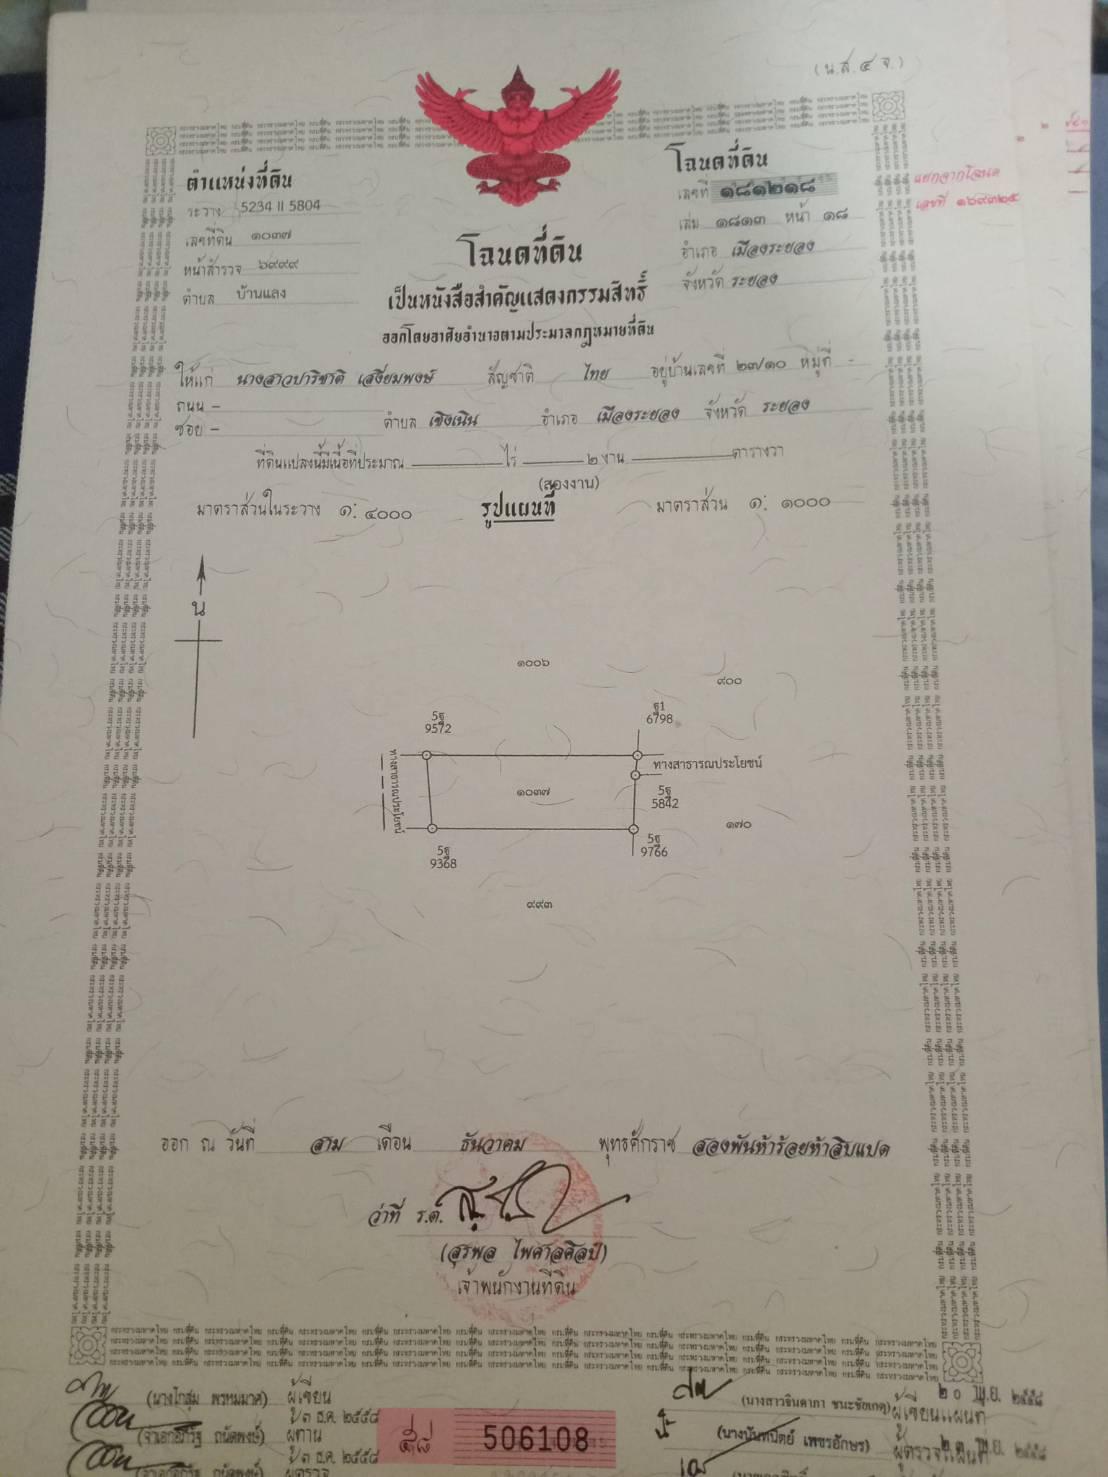 (น.ส.๔ จ.)
ตำแหน่งที่ดิน
ระวาง 5234 II 5804
เลขที่ดิน ๑๐๓๗
หน้าสำรวจ ๖๙๙๙
ตำบล บ้านแลง
โฉนดที่ดิน
เลขที่ ๑๘๑๒๑๘
เล่ม ๑๘๑๓ หน้า ๑๘
อำเภอ เมืองระยอง
จังหวัด ระยอง
แยกจากโฉนด
เลขที่ ๑๖๙๓๒๕
โฉนดที่ดิน
เป็นหนังสือสำคัญแสดงกรรมสิทธิ์
ออกโดยอาศัยอำนาจตามประมวลกฎหมายที่ดิน
ให้แก่ นางสาวปาริชาติ เสงี่ยมพงษ์ สัญชาติ ไทย อยู่บ้านเลขที่ ๒๗/๑๐ หมู่ที่ -
ถนน -
ซอย - ตำบล เชิงเนิน อำเภอ เมืองระยอง จังหวัด ระยอง
ที่ดินแปลงนี้มีเนื้อที่ประมาณ ไร่ ๒ งาน ตารางวา
(สองงาน)
มาตราส่วนในระวาง ๑: ๔๐๐๐ รูปแผนที่ มาตราส่วน ๑: ๑๐๐๐
น
๑๐๐๖
๙๐๐
5ฐ
9572
ฐ1
6798
ทางสาธารณประโยชน์
ทางสาธารณประโยชน์
๑๐๓๗
5ฐ
5842
๑๗๐
5ฐ
9368
5ฐ
9766
๙๙๓
ออก ณ วันที่ สาม เดือน ธันวาคม พุทธศักราช สองพันห้าร้อยห้าสิบแปด
ว่าที่ ร.ต.
(สุรพล ไพศาลศิลป์)
เจ้าพนักงานที่ดิน
(นางโกสุม พรหมมาศ) ผู้เขียน
๓ ธ.ค. ๒๕๕๘
ผู้ทาน
๓ ธ.ค. ๒๕๕๘
ผู้ตรวจ
๕๘ 506108
๒๐ พ.ย. ๒๕๕๘
(นางสาวจินดาภา ชนะชัยเกตุ) ผู้เขียนแผนที่
(นางนันทนิตย์ เพชรอักษร) ผู้ตรวจแผนที่
พ.ย. ๒๕๕๘